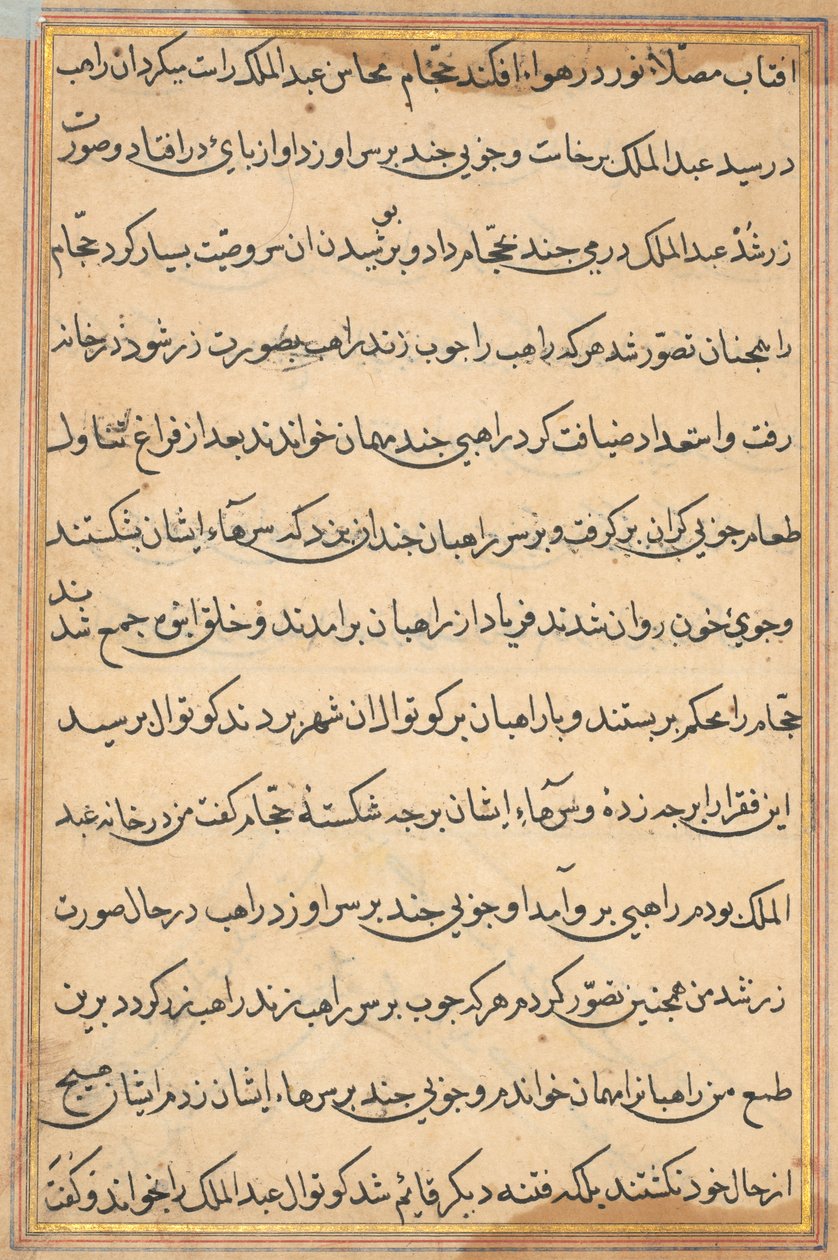 افتاب مصلّاء نور در هواء افکند حجّام محاسن عبد الملک راست میکرد ان راهب
در رسید عبد الملک برخاست و جوبی جند بر سر او زد او از بای در افتاد و صورت
زر شُدْ عبد الملک درمی جند بحجّام داد و بر بوشیدن ان سر وصیّت بسیار کرد حجّام
را همجنان تصوّر شد هر که راهب را جوب زند راهب بصورت زر شود در خانه
رفت و استعداد ضیافت کرد راهبی جند مهمان خواندند بعد از فراغ تناول
طعام جوبی کران بر کرفت و بر سر راهبان جندان بزد که سرهاء ایشان بشکستند
و جویء خون روان شدند فریاد از راهبان برامدند و خلق انبوه جمع شدند
حجّام را محکم بر بستند و با راهبان بر کوتوال ان شهر بردند کوتوال برسید
این فقرا را بر جه زدهٔ و سرهاءِ ایشان بر جه شکستهٔ حجّام کفت من در خانه عبد
الملک بودم راهبی بر و آمد او جوبی جند بر سر او زد راهب در حال صورت
زر شد من همجنین تصوّر کردم هر که جوب بر سر راهب زند راهب زر کردد برین
طمع من راهبانرا مهمان خواندم و جوبی جند بر سرهاء ایشان زدم ایشان هیج
از حال خود نکشتند بلکه فتنه دیکر قایٔم شد کوتوال عبد الملک را بخواند و کفت